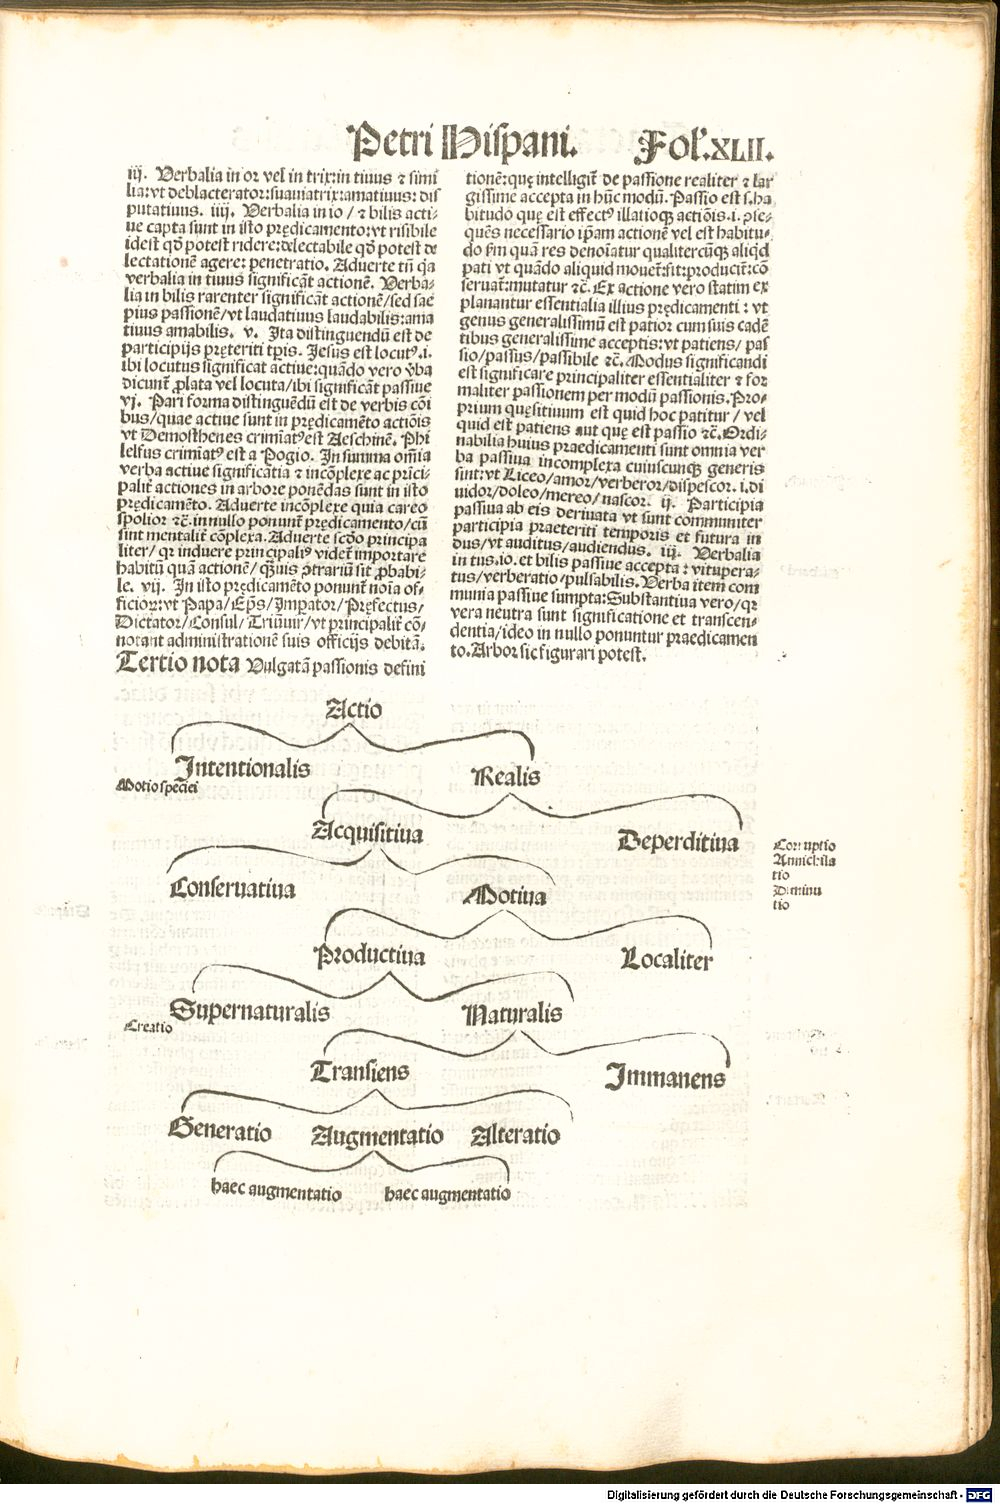 Petri Hispani. Fol.XLII.
iij. Verbalia in or vel in trix: in tiuus ⁊ simi
lia: vt deblacterator: suauiatrix: amatiuus: dis
putatiuus. iiij. Verbalia in io / ⁊ bilis acti-
ue capta sunt in isto prędicamento: vt risibile
idest qď potest ridere: delectabile qď potest de
lectationē agere: penetratio. Aduerte tñ q̃a
verbalia in tiuus significāt actionē. Verba-
lia in bilis rarenter significāt actionē / sed sae
pius passionē / vt laudatiuus laudabilis: ama
tiuus amabilis. v. Ita distinguendū est de
participijs pręteriti tp̄is. Jesus est locutꝰ .i.
ibi locutus significat actiue: quādo vero v̄ba
dicunt̄ ꝓlata vel locuta / ibi significāt passiue
vj. Pari forma distinguēdū est de verbis cōi
bus / quae actiue sunt in prędicamēto actiōis
vt Demosthenes crimiatꝰ est Aeschinē. Phi
lelfus crimiatꝰ est a Pogio. In summa om̄ia
verba actiue significātia ⁊ incōplexe ac prīci-
palit̄ actiones in arbore ponēdas sunt in isto
prędicamēto. Aduerte incōplexe quia careo
spolior ⁊c̄. in nullo ponunt̄ prędicamento / cū
sint mentalit̄ cōplexa. Aduerte scďo principa
liter / qꝛ induere principaliꝰ videt̄ importare
habitū quā actionē / q̄uis ꝯtrariū sit ꝓbabi-
le. vij. In isto prędicamēto ponunt̄ noīa of-
ficioꝝ: vt Papa / Ep̄s / Imp̄ator / Pręfectus /
Dictator / Consul / Triūuir / vt principalit̄ cō-
notant administrationē suis officijs debitā.
Tertio nota Vulgatā passionis defini
tionē: quę intelligit̄ de passione realiter ⁊ lar
gissime accepta in hūc modū. Passio est s. ha
bitudo quę est effectꝰ illatioq̄ꝫ actiōis .i. ꝯse-
quēs necessario ip̄am actionē vel est habitu-
do s̄m quā res denoīatur qualitercūq̄ꝫ aliqď
pati vt quādo aliquid mouet̄: fit: producit̄: cō
seruat̄: mutatur ⁊c̄. Ex actione vero statim ex
planantur essentialia illius prędicamenti: vt
genus generalissimū est patior cum suis cadē
tibus generalissime acceptis: vt patiens / pas
sio / passus / passibile ⁊c̄. Modus significandi
est significare principaliter essentialiter ⁊ for
maliter passionem per modū passionis. Pro-
prium quęsitiuum est quid hoc patitur / vel
quid est patiens aut quę est passio ⁊c̄. Ordi-
nabilia huius praedicamenti sunt omnia ver
ba passiua incomplexa cuiuscunq̄ꝫ generis
sint: vt Liceo / amor / verberor / dispescor. i. di
uidor / doleo / mereo / nascor. ij. Participia
passiua ab eis deriuata vt sunt communiter
participia praeteriti temporis et futura in
dus / vt auditus / audiendus. iij. Verbalia
in tus. io. et bilis passiue accepta: vitupera-
tus / verberatio / pulsabilis. Verba item com
munia passiue sumpta: Substantiua vero / qꝛ
vera neutra sunt significatione et transcen-
dentia / ideo in nullo ponuntur praedicamen
to. Arbor sic figurari potest.
Actio
Intentionalis Realis
Motio speciei
Acquisitiua Deperditiua
Corruptio
Annichila
tio
Diminu
tio
Conseruatiua Motiua
Productiua Localiter
Supernaturalis Naturalis
Creatio
Transiens Immanens
Generatio Augmentatio Alteratio
haec augmentatio haec augmentatio
Digitalisierung gefördert durch die Deutsche Forschungsgemeinschaft - DFG